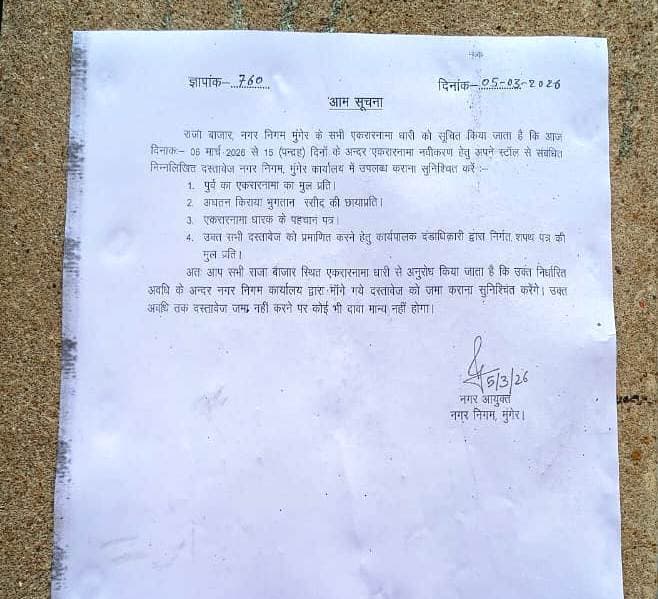 ज्ञापांक- 760 दिनांक- 05-03-2026
आम सूचना
राजा बाजार, नगर निगम मुंगेर के सभी एकरारनामा धारी को सूचित किया जाता है कि आज
दिनांक:- 06 मार्च-2026 से 15 (पन्द्रह) दिनों के अन्दर एकरारनामा नवीकरण हेतु अपने स्टॉल से संबंधित
निम्नलिखित दस्तावेज नगर निगम, मुंगेर कार्यालय में उपलब्ध कराना सुनिश्चित करें :-
1. पुर्व का एकरारनामा का मुल प्रति।
2. अघतन किराया भुगतान रसीद की छायाप्रति।
3. एकरारनामा धारक के पहचान पत्र।
4. उक्त सभी दस्तावेज को प्रमाणित करने हेतु कार्यपालक दंडाधिकारी द्वारा निर्गत शपथ पत्र की
मुल प्रति।
अतः आप सभी राजा बाजार स्थित एकरारनामा धारी से अनुरोध किया जाता है कि उक्त निर्धारित
अवधि के अन्दर नगर निगम कार्यालय द्वारा माँगे गये दस्तावेज को जमा कराना सुनिश्चित करेंगे। उक्त
अवधि तक दस्तावेज जमा नहीं करने पर कोई भी दावा मान्य नहीं होगा।
5/3/26
नगर आयुक्त
नगर निगम, मुंगेर।